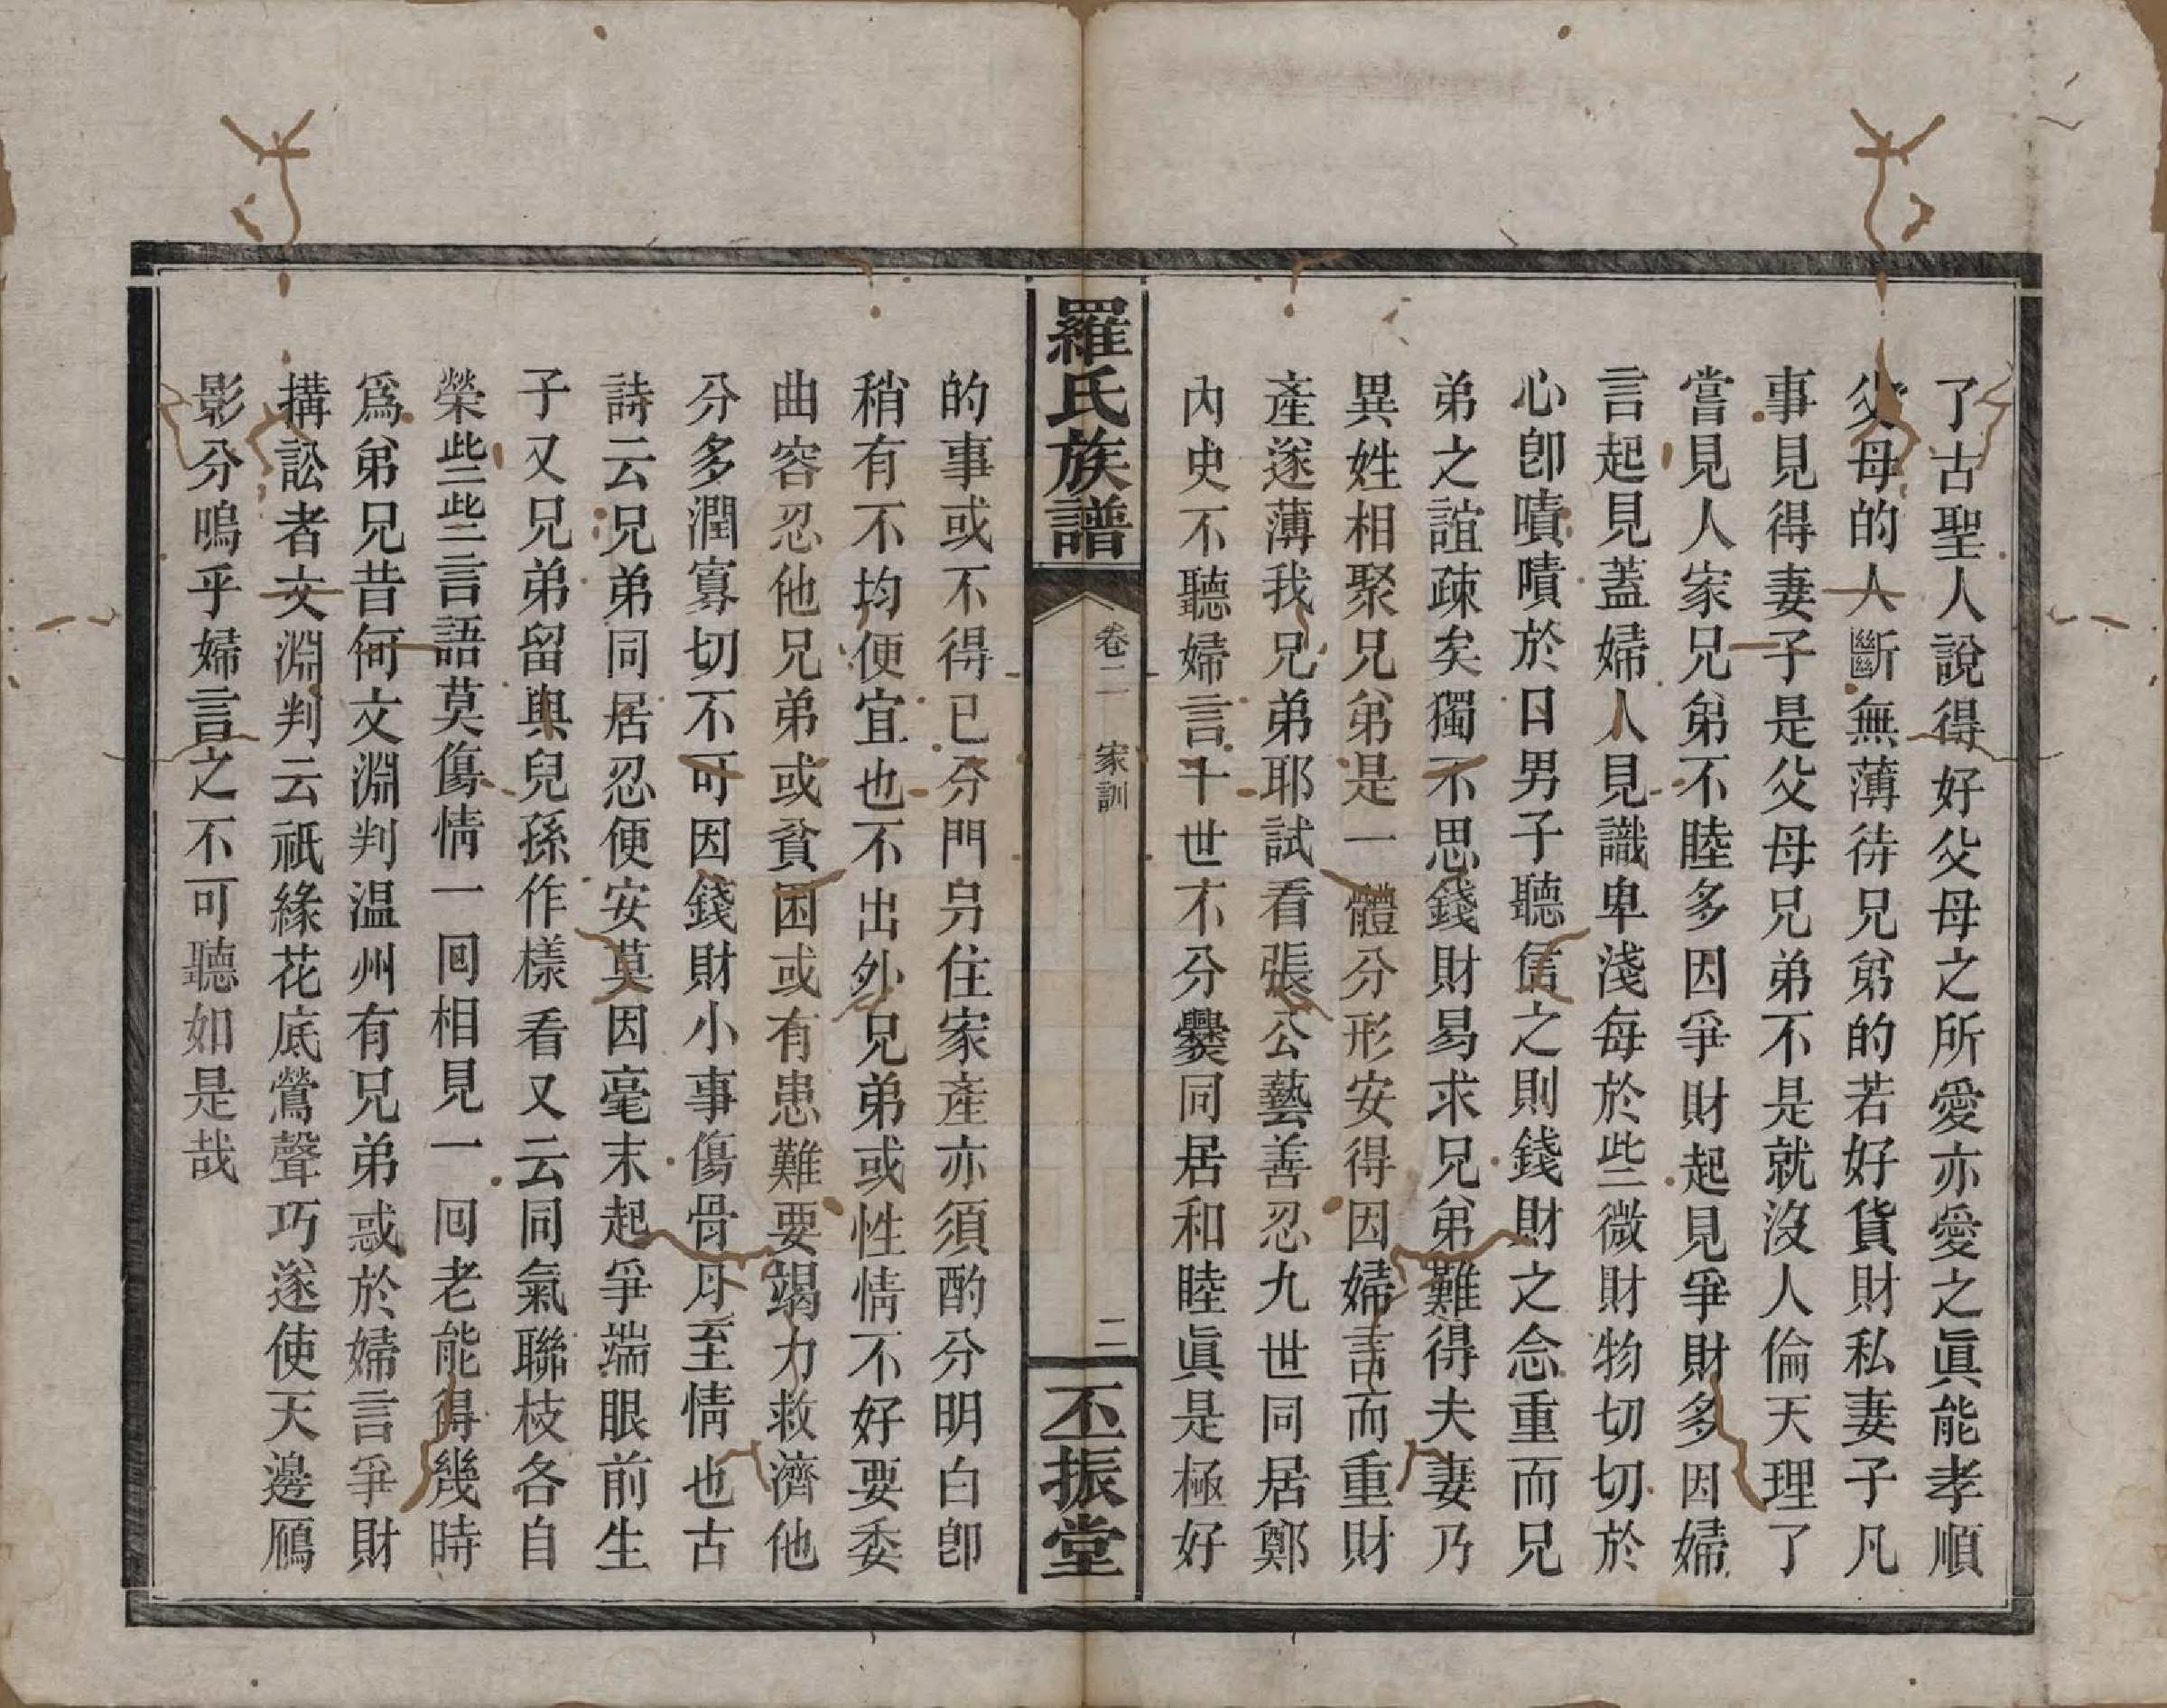 了古聖人說得好父母之所愛亦愛之眞能孝順
父母的人斷無薄待兄弟的若好貨財私妻子凡
事見得妻子是父母兄弟不是就沒人倫天理了
嘗見人家兄弟不睦多因爭財起見爭財多因婦
言起見蓋婦人見識卑淺每於些微財物切切於
心卽嘖嘖於日男子聽信之則錢財之念重而兄
弟之誼疎矣獨不思錢財易求兄弟難得夫妻乃
異姓相聚兄弟是一體分形安得因婦言而重財
產遂薄我兄弟耶試看張公藝善忍九世同居鄭
內史不聽婦言十世不分爨同居和睦眞是極好
羅氏族譜
卷二 家訓
二
丕振堂
的事或不得已分門另住家產亦須酌分明白卽
稍有不均便宜也不出外兄弟或性情不好要委
曲容忍他兄弟或貧困或有患難要竭力救濟他
分多潤寡切不可因錢財小事傷骨月至情也古
詩云兄弟同居忍便安莫因毫末起爭端眼前生
子又兄弟留與兒孫作樣看又云同氣聯枝各自
榮些些言語莫傷情一回相見一回老能得幾時
爲弟兄昔何文淵判温州有兄弟惑於婦言爭財
搆訟者文淵判云祇緣花底鶯聲巧遂使天邊鴈
影分嗚乎婦言之不可聽如是哉